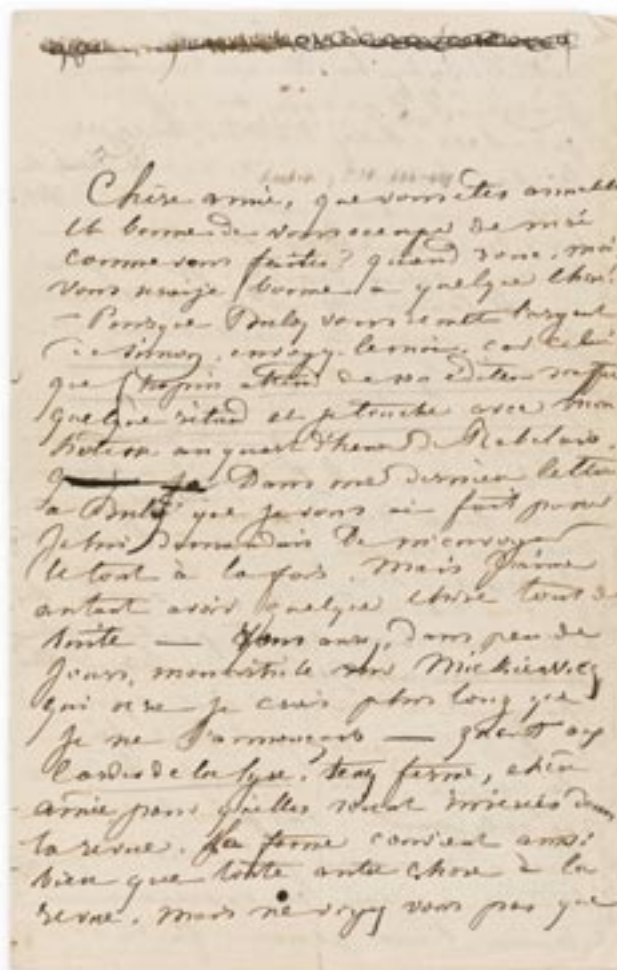 Chère amie, que vous êtes aimable
et bonne de vous occuper de moi
comme vous faites ? quand donc, moi
vous serai-je bonne à quelque chose ?
— Puisque Buloz vous remet l'argent
de Simon, envoyez le moi, car celui
que Chopin attend de son éditeur souffre
quelque retard et je touche avec mon
au quart d'heure de Rabelais.
Dans ma dernière lettre
à Buloz que je vous ai fait passer
je lui demandais de m'envoyer
le tout à la fois. Mais j'aime
autant avoir quelque chose tout de
suite — Vous aurez, dans peu de
jours, mon article sur Mickiewicz
qui sera je crois plus long que
je ne l'annonçais — quant aux
Cordes de la lyre, tenez ferme, chère
amie pour qu'elles soient insérées dans
la revue. La forme convient aussi
bien que toute autre chose à la
revue. Mais ne voyez vous pas que